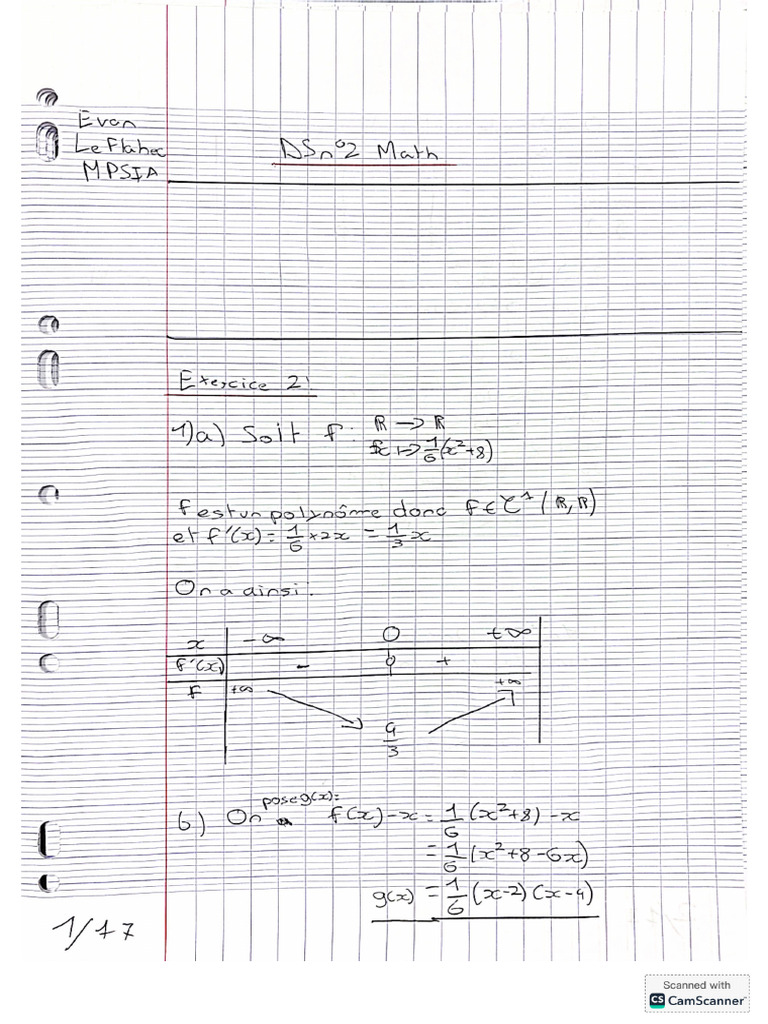 Evan
Le Flahec
MPSIA
DSn°2 Math
Exercice 2:
1)a) Soit f: ℝ → ℝ
x ↦ 1/6(x²+8)
f est un polynôme donc f ∈ C¹(ℝ, ℝ)
et f'(x) = 1/6 × 2x = 1/3 x
On a ainsi:
x -∞ 0 +∞
f'(x) - 0 +
f +∞ 4/3 +∞
b) On pose g(x)= f(x)-x = 1/6 (x²+8) -x
= 1/6 (x²+8-6x)
g(x) = 1/6 (x-2)(x-4)
1/17
Scanned with
CS CamScanner